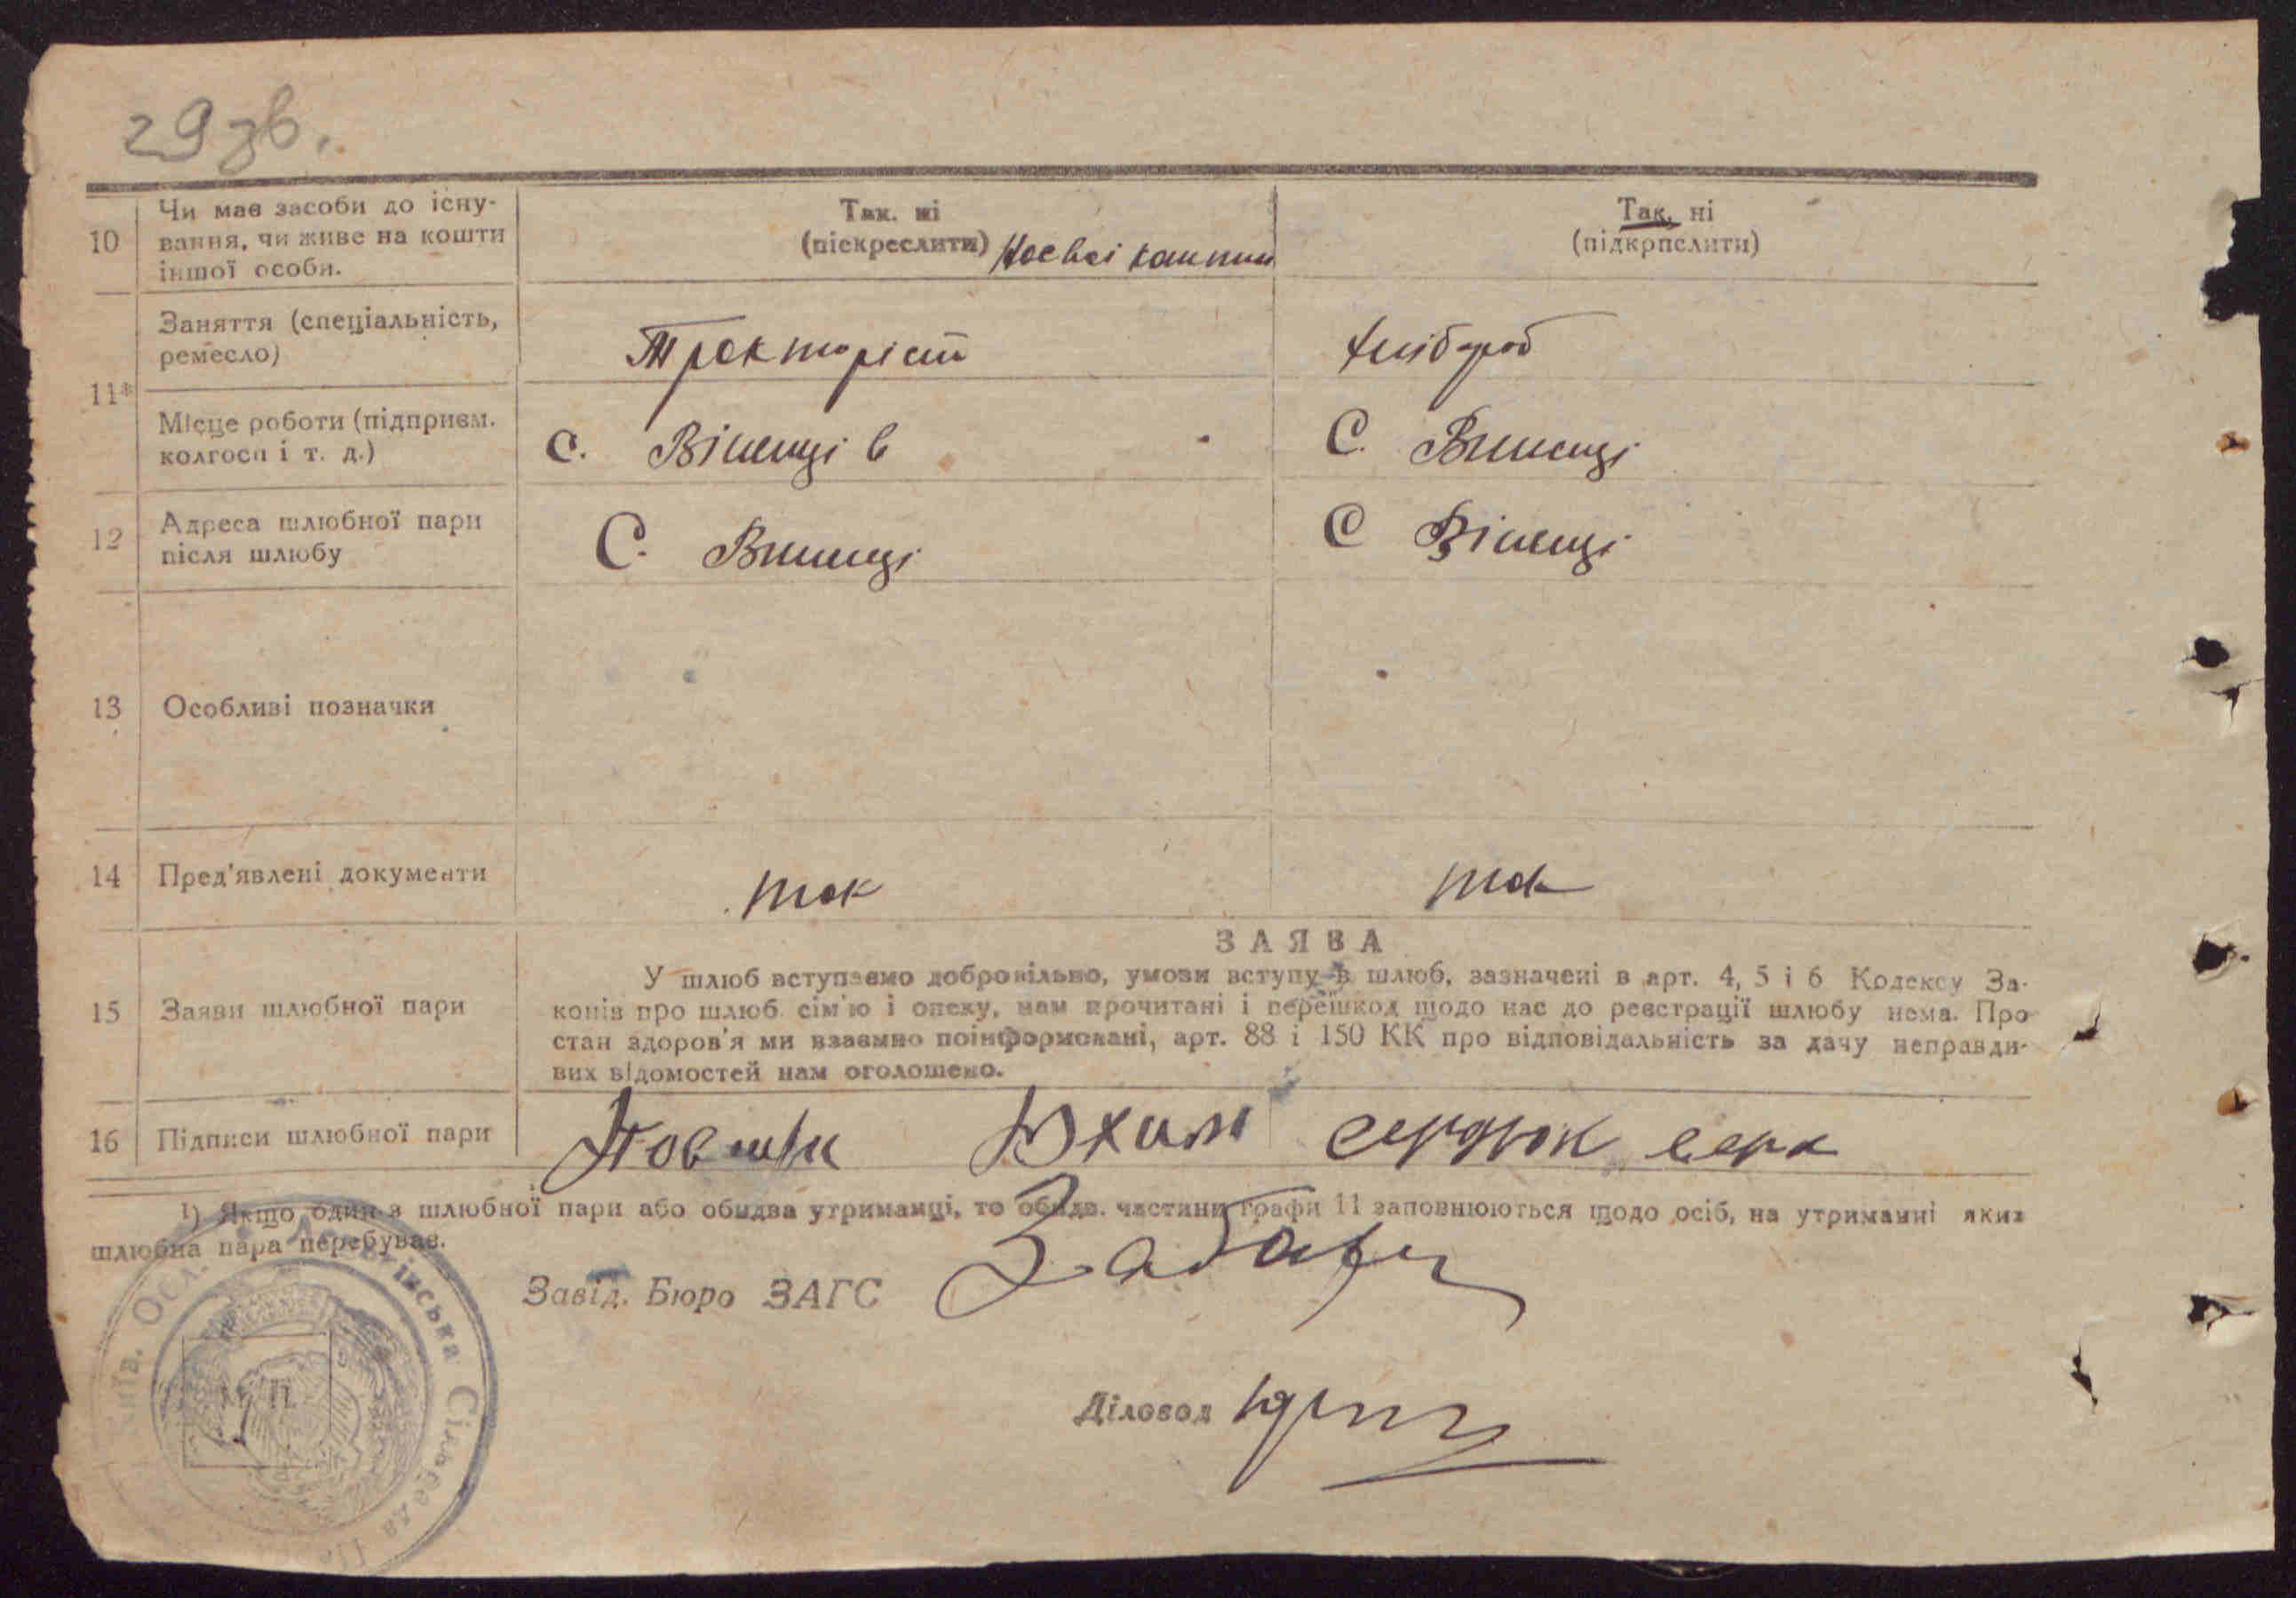 29 зв.
10
Чи має засоби до існу-
вання, чи живе на кошти
іншої особи.
Так. ні
(піскреслити) На свої кошти
Так, ні
(підкрпслити)
11*
Заняття (спеціальність,
ремесло)
Тракторіст
хлібороб
Місце роботи (підприєм.
колгосп і т. д.)
с. Вішенці в
С. Вишенці
12
Адреса шлюбної пари
після шлюбу
С. Вишенці
С Вішенці
13
Особливі позначки
14
Пред'явлені документи
так
так
ЗАЯВА
15
Заяви шлюбної пари
У шлюб вступаємо добровільно, умови вступу в шлюб, зазначені в арт. 4, 5 і 6 Кодексу За-
конів про шлюб сім'ю і опеку, нам прочитані і перешкод щодо нас до реєстрації шлюбу нема. Про
стан здоров'я ми взаємно поінформовані, арт. 88 і 150 КК про відповідальність за дачу неправди-
вих відомостей нам оголошено.
16
Підписи шлюбної пари
Юхим
сердюк
1) Якщо один з шлюбної пари або обидва утриманці, то обидв. частини графи 11 заповнюються щодо осіб, на утриманні яких
шлюбна пара перебуває.
Завід. Бюро ЗАГС
Діловод
М П
Сільрада